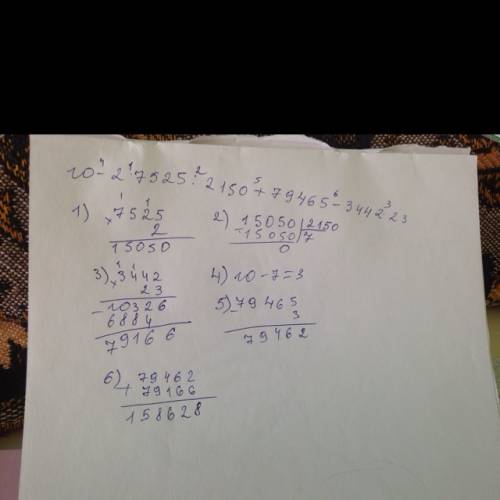 10-2·7525:2150+79465-3442·23
1) ×7525
2
15050
2) 15050 | 2150
-15050 | 7
0
3) ×3442
23
10326
6884
79166
4) 10-7=3
5) -79465
3
79462
6) +79462
79166
158628